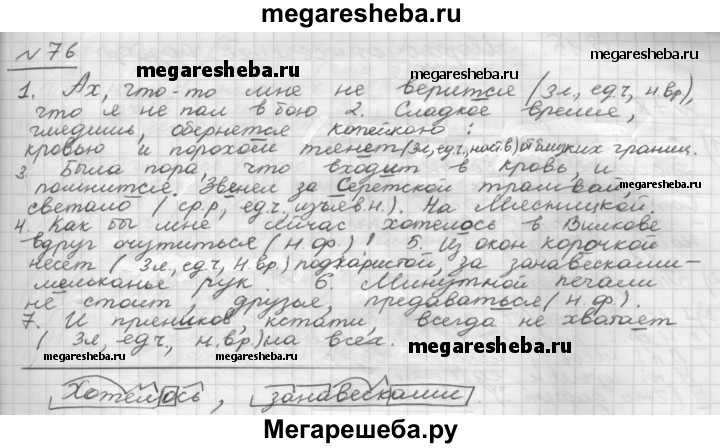 megaresheba.ru
N 76
megaresheba.ru
1. Ах, что-то мне не верится (3л, ед.ч, н.вр),
что я не пал в бою 2. Сладкое время,
глядишь, обернется копейкою:
кровью и порохом тянет (3л, ед.ч, наст.в) от близких границ.
3. Была пора, что входит в кровь, и
помнится. Звенел за Серетской трамвай,
megaresheba.ru
светало (ср.р, ед.ч, изъяв.н.). На Мясницкой
4. Как бы мне сейчас хотелось в Вилкове
вдруг очутиться (н.ф.)! 5. Из окон корочкой
несет (3л, ед.ч, н.вр.) поджаристой, за занавесками-
мельканье рук. 6. Минутной печали
не стоит, друзья, предаваться (н.ф.).
7. И пряников, кстати, всегда не хватает
(3л, ед.ч, н.вр) на всех.
megaresheba.ru
megaresheba.ru
megaresheba.ru
Хотелось, занавесками.
Мегарешеба.ру